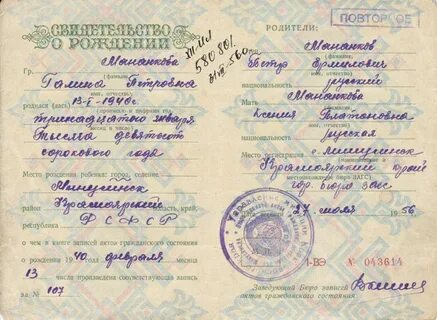 СВИДЕТЕЛЬСТВО
О РОЖДЕНИИ
Гр. Мананкова
(фамилия)
Галина Петровна
(имя, отчество)
родился (ась) 13-I-1940 г.
тринадцатого января
Тысяча девятьсот
сорокового года
Место рождения ребенка: город, селение
Минусинск
район
Красноярский край,
республика РСФСР
о чем в книге записей актов гражданского состояния
о рождении 1940 февраля
13 числа произведена соответствующая запись
за № 107
580801
860
ПОВТОРНОЕ
РОДИТЕЛИ:
Отец Мананков
(фамилия)
Петр
(имя, отчество)
национальность русский
Мать Мананкова
(фамилия)
Ксения Платоновна
(имя, отчество)
национальность русская
Место регистрации
Красноярский край
гор бюро ЗАГС
27 июля 1956
I-ВЭ № 043614
Заведующий Бюро записей
актов гражданского состояния